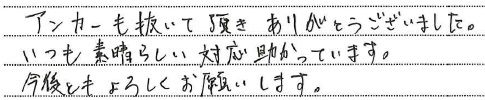 アンカーも抜いて頂きありがとうございました。
いつも素晴らしい対応助かっています。
今後ともよろしくお願いします。